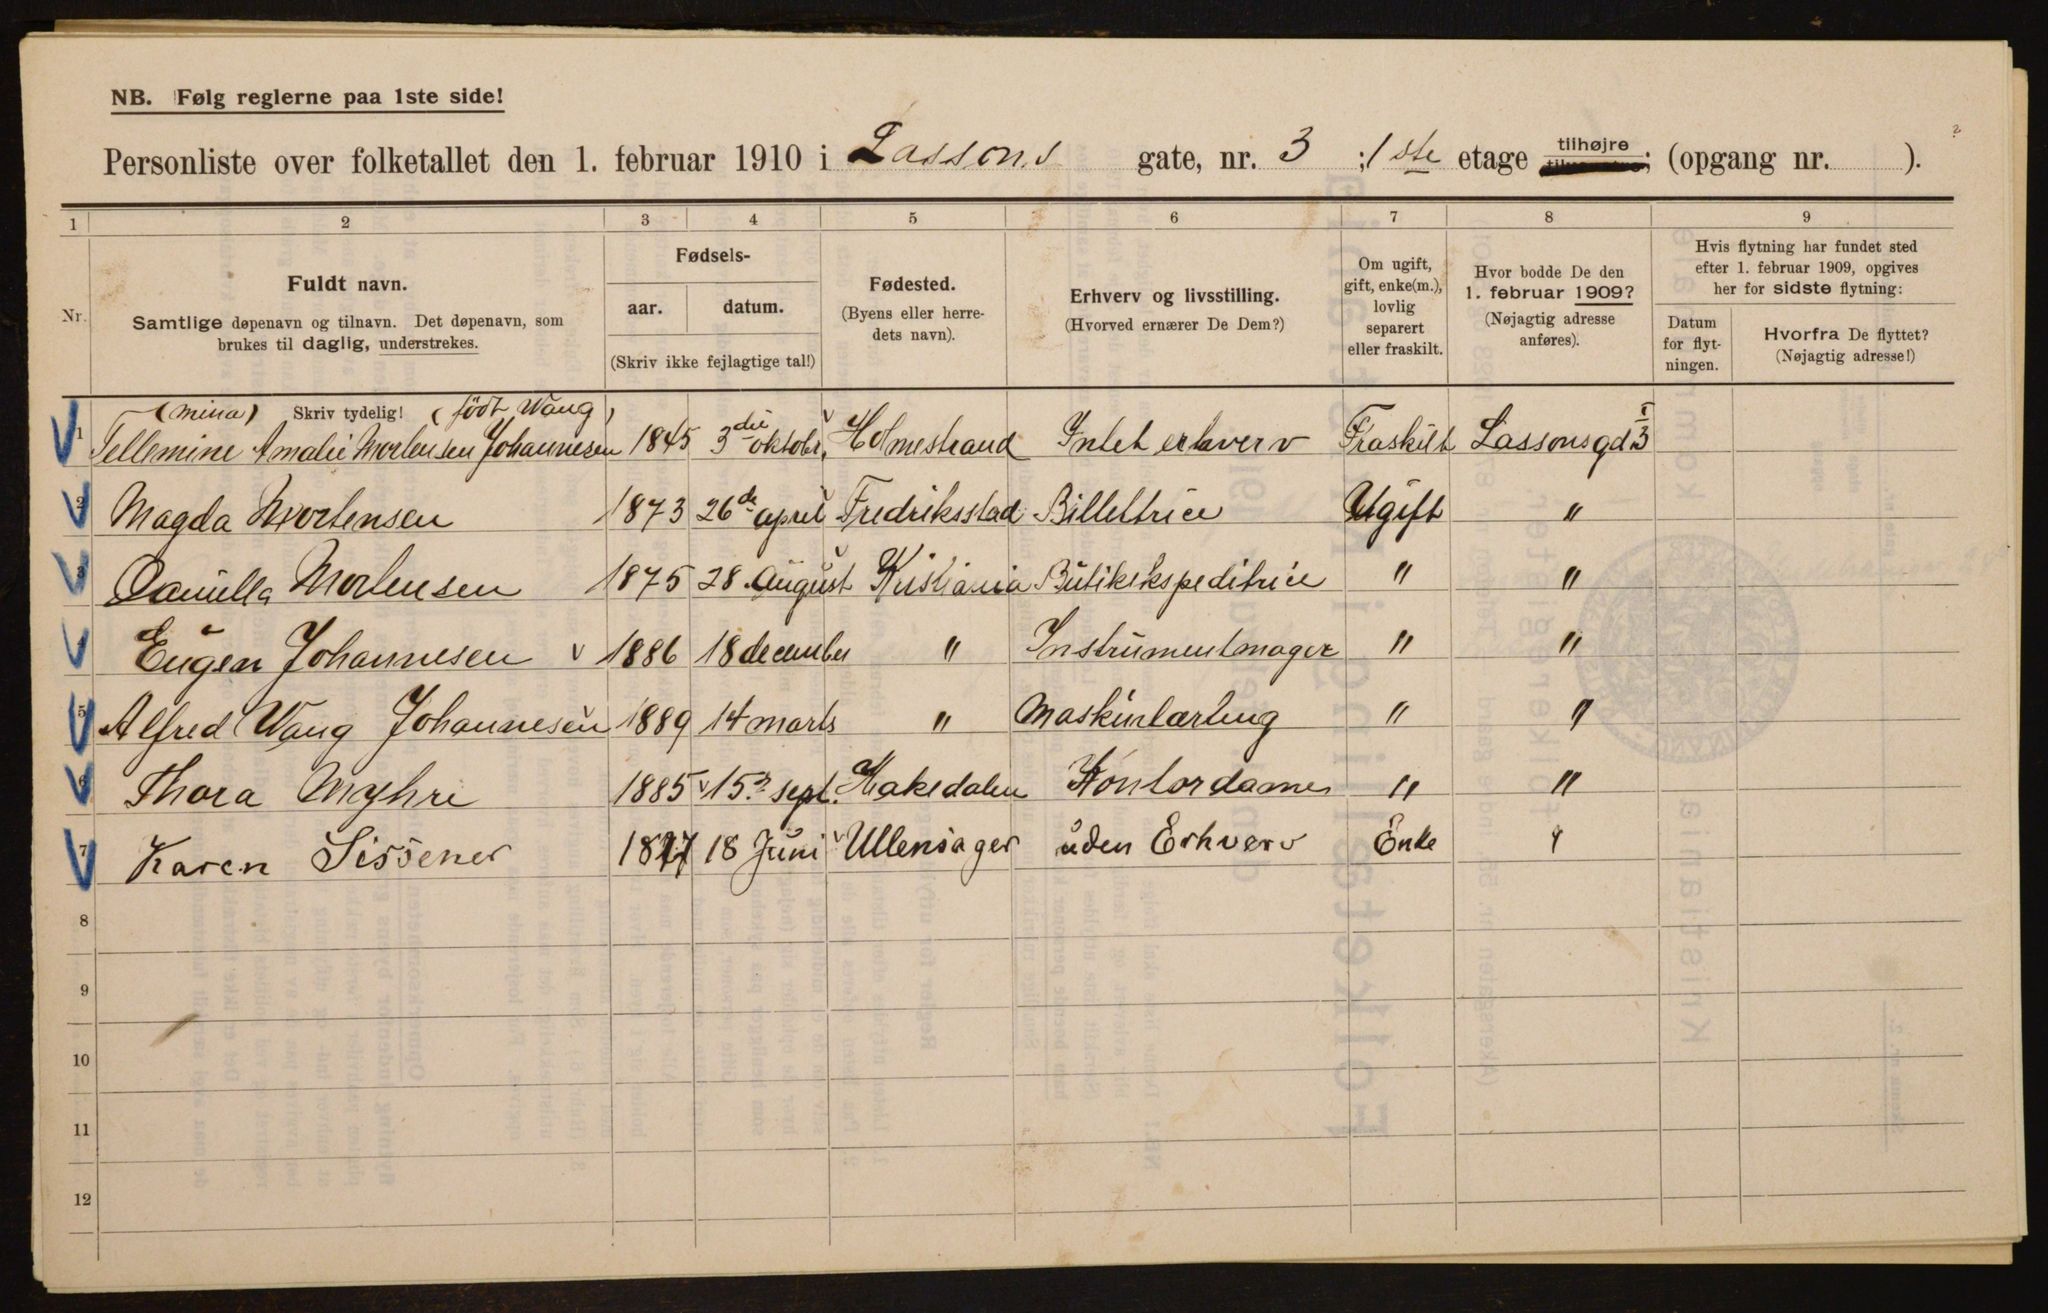 NB. Følg reglerne paa 1ste side!
Personliste over folketallet den 1. februar 1910 i Lassons gate, nr. 3 ; 1ste etage tilhøjre ; (opgang nr. ).
1 2 3 4 5 6 7 8 9
Nr.
Fuldt navn.
Samtlige døpenavn og tilnavn. Det døpenavn, som
brukes til daglig, understrekes.
Fødsels-
aar. datum.
(Skriv ikke fejlagtige tal!)
Fødested.
(Byens eller herre-
dets navn).
Erhverv og livsstilling.
(Hvorved ernærer De Dem?)
Om ugift,
gift, enke(m.),
lovlig
separert
eller fraskilt.
Hvor bodde De den
1. februar 1909?
(Nøjagtig adresse
anføres).
Hvis flytning har fundet sted
efter 1. februar 1909, opgives
her for sidste flytning:
Datum
for flyt-
ningen.
Hvorfra De flyttet?
(Nøjagtig adresse!)
(mina) Skriv tydelig! (födt Wang)
1 Tellemine Amalie Mortensen Johannesen 1845 3die oktobr. Holmestrand Intet erhverv Fraskilt Lassonsgd 3 I
2 Magda Mortensen 1873 26de april Fredriksstad Billettrice Ugift "
3 Camilla Mortensen 1875 28. August Kristiania Butikekspeditrice " "
4 Eugen Johannesen 1886 18 december " Instrumentmager " "
5 Alfred Wang Johannesen 1889 14 marts " Maskinlærling " "
6 Thora Myhre 1885 15. sept. Hakedalen Kontordame " "
7 Karen Sissener 18 Juni Ullensager uden Erhverv Enke "
8
9
10
11
12